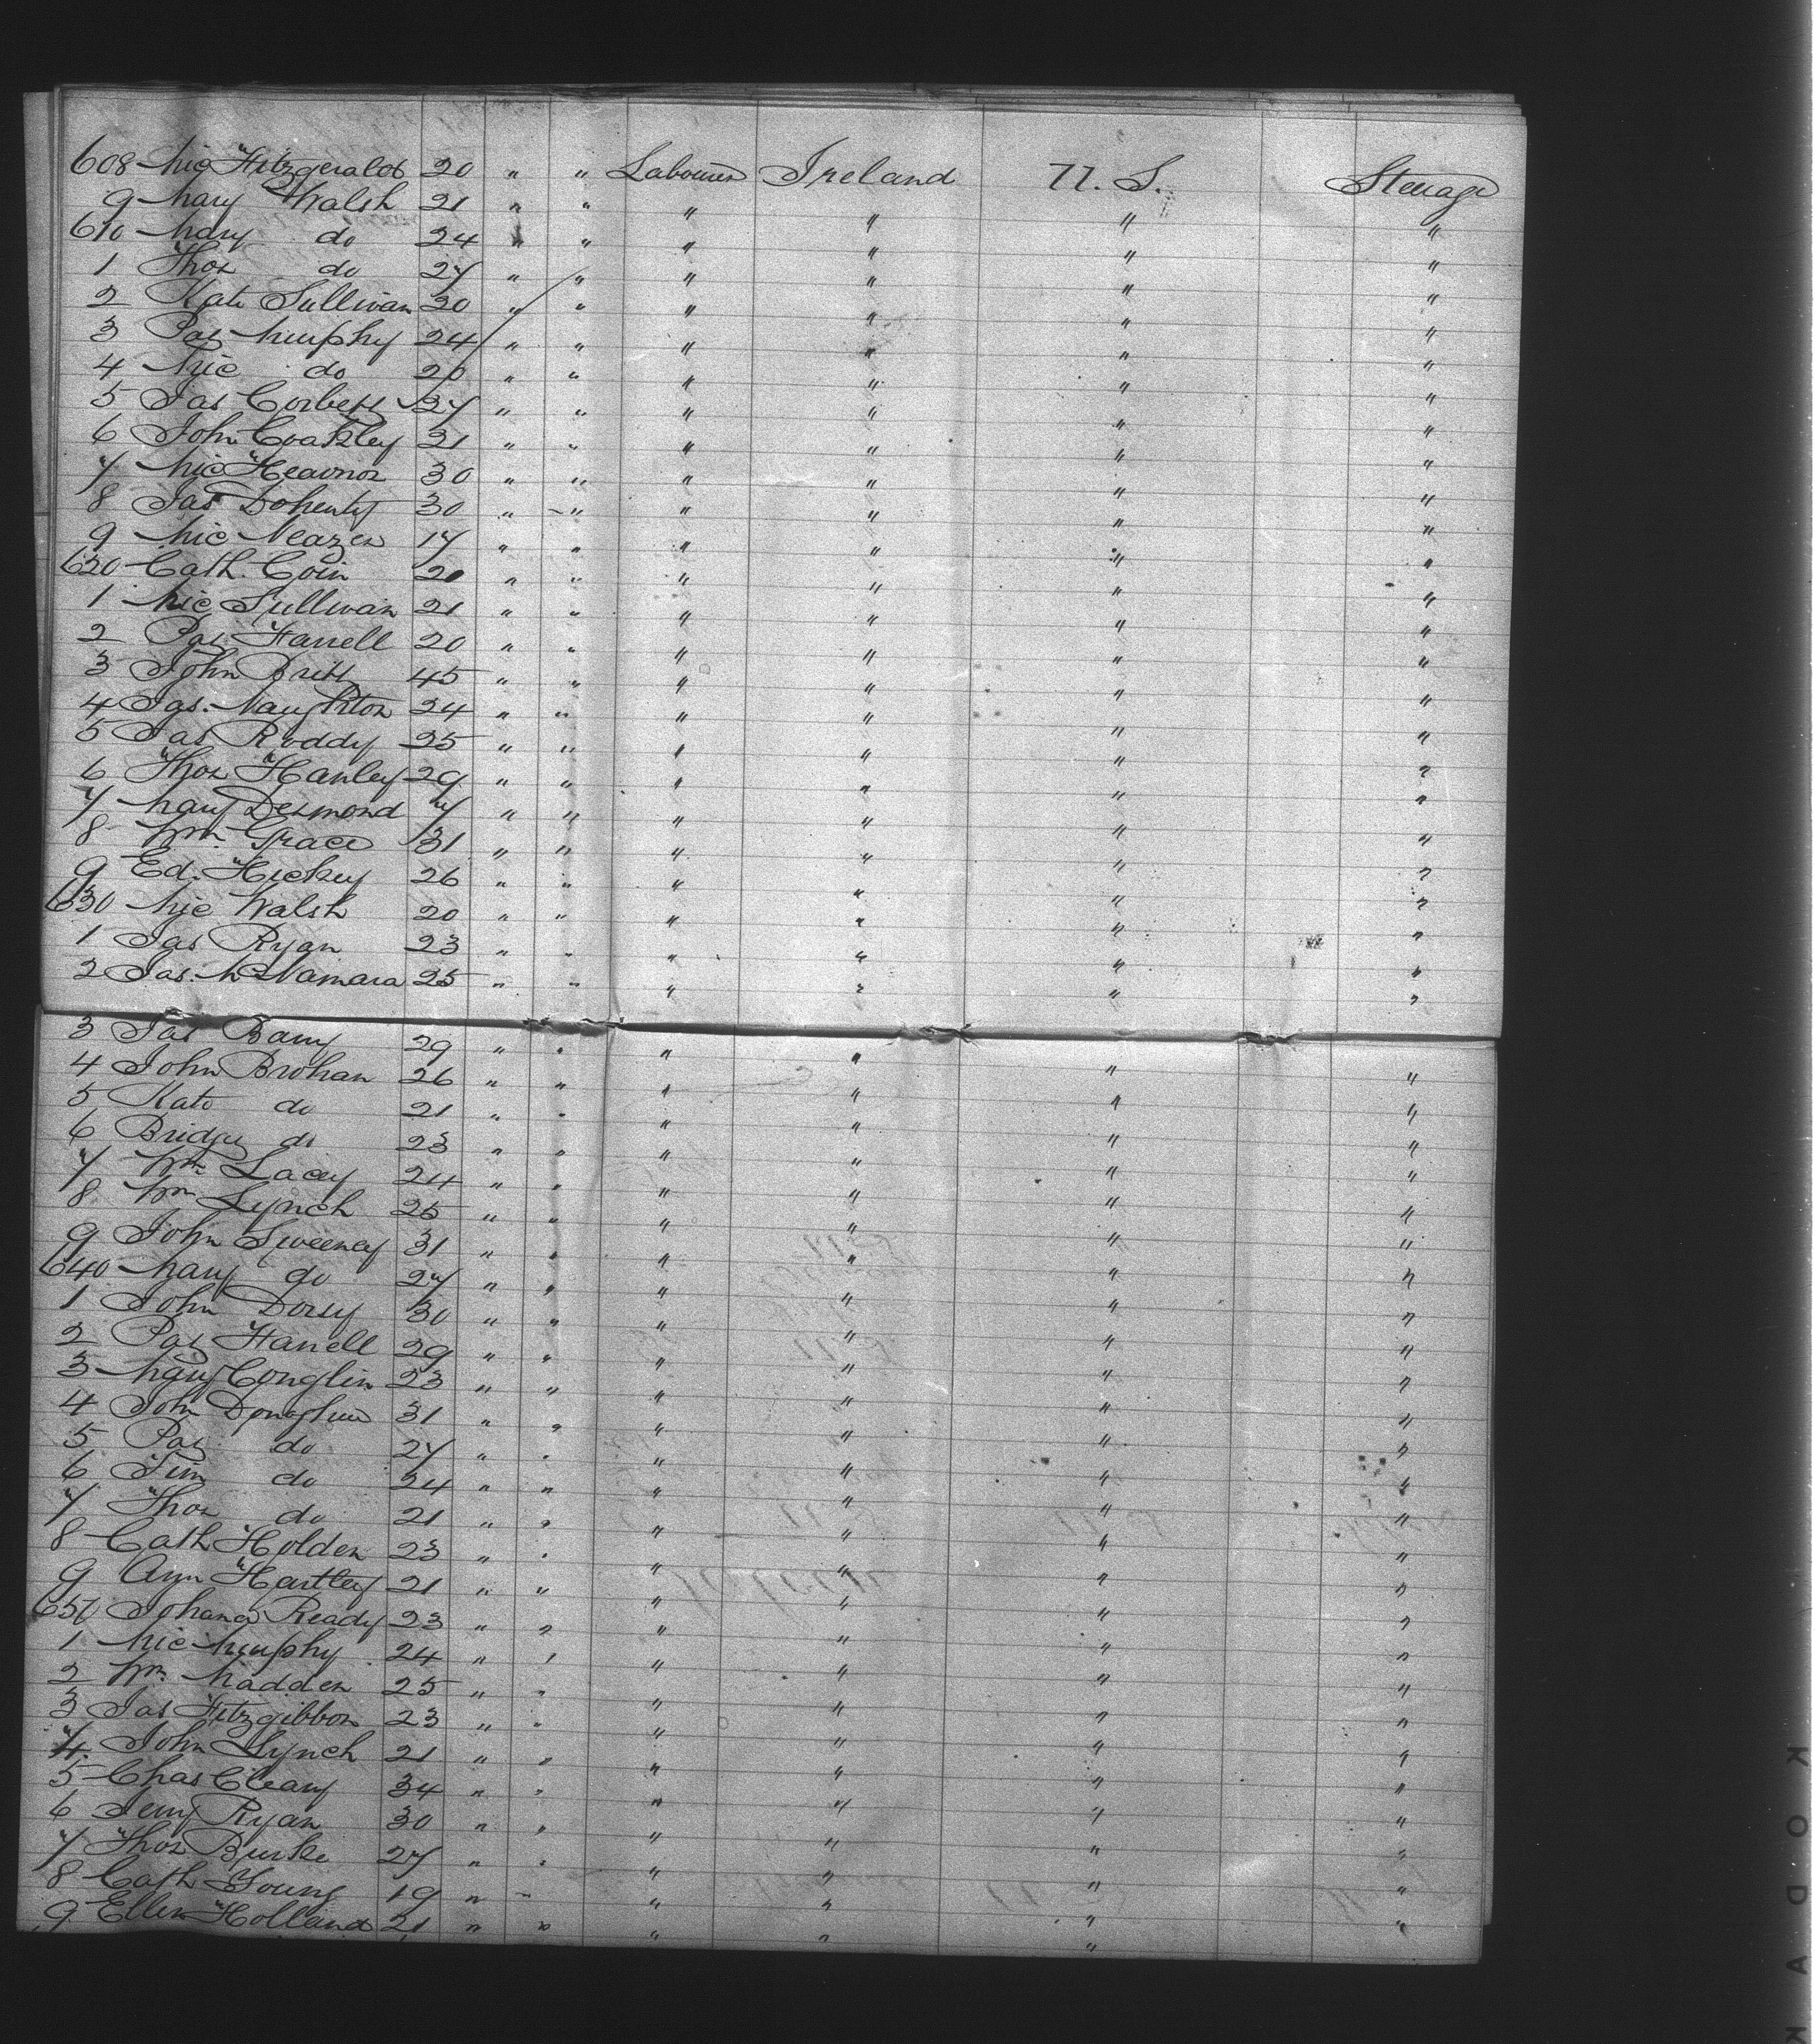 608 Mic Fitzgerald 20 " " Labourer Ireland U. S. Steerage
9 Mary Walsh 21 " " " " " "
610 Mary do 24 " " " " " "
1 Thos do 27 " " " " " "
2 Kate Sullivan 20 " " " " " "
3 Pat Murphy 24 " " " " " "
4 Mic do 20 " " " " " "
5 Jas Corbett 27 " " " " " "
6 John Coakley 21 " " " " " "
7 Mic 30 " " " " " "
8 Jas Doherty 30 " " " " " "
9 Mic 17 " " " " " "
620 Cath. Coin 20 " " " " " "
1 Mic Sullivan 21 " " " " " "
2 Pat Farrell 20 " " " " " "
3 John Britt 45 " " " " " "
4 Jas. Naughton 24 " " " " " "
5 Jas Roddy 25 " " " " " "
6 Thos Hanley 29 " " " " " "
7 Mary Desmond 7 " " " " " "
8 Wm. Grace 31 " " " " " "
9 Ed. Hickey 26 " " " " " "
630 Mic Walsh 20 " " " " " "
1 Jas Ryan 23 " " " " " "
2 Jas. McNamara 25 " " " " " "
3 Jas Barry 29 " " " " " "
4 John Brohan 26 " " " " " "
5 Kate do 21 " " " " " "
6 Bridget do 23 " " " " " "
7 Wm Lacey 24 " " " " " "
8 Wm Lynch 25 " " " " " "
9 John Sweeney 31 " " " " " "
640 Mary do 27 " " " " " "
1 John Dorsy 30 " " " " " "
2 Pat Farrell 29 " " " " " "
3 Mary Conglin 23 " " " " " "
4 John Donoghue 31 " " " " " "
5 Pat do 27 " " " " " "
6 Tim do 24 " " " " " "
7 Thos do 21 " " " " " "
8 Cath Holden 23 " " " " " "
9 Ann Hartley 21 " " " " " "
650 Johana Ready 23 " " " " " "
1 Mic Murphy 24 " " " " " "
2 Wm. Madden 25 " " " " " "
3 Jas Fitzgibbon 23 " " " " " "
4 John Lynch 21 " " " " " "
5 Chas Cleary 34 " " " " " "
6 Jerry Ryan 30 " " " " " "
7 Thos Burke 27 " " " " " "
8 Cath Young 19 " " " " " "
9 Ellen Holland 21 " " " " " "
KODAK